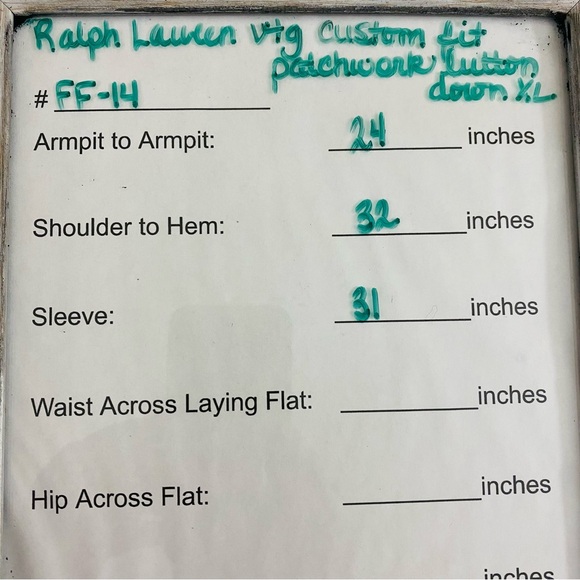 Ralph Lauren vtg custom fit
patchwork button
down XL
# FF-14
Armpit to Armpit: 24 inches
Shoulder to Hem: 32 inches
Sleeve: 31 inches
Waist Across Laying Flat: inches
Hip Across Flat: inches
inches